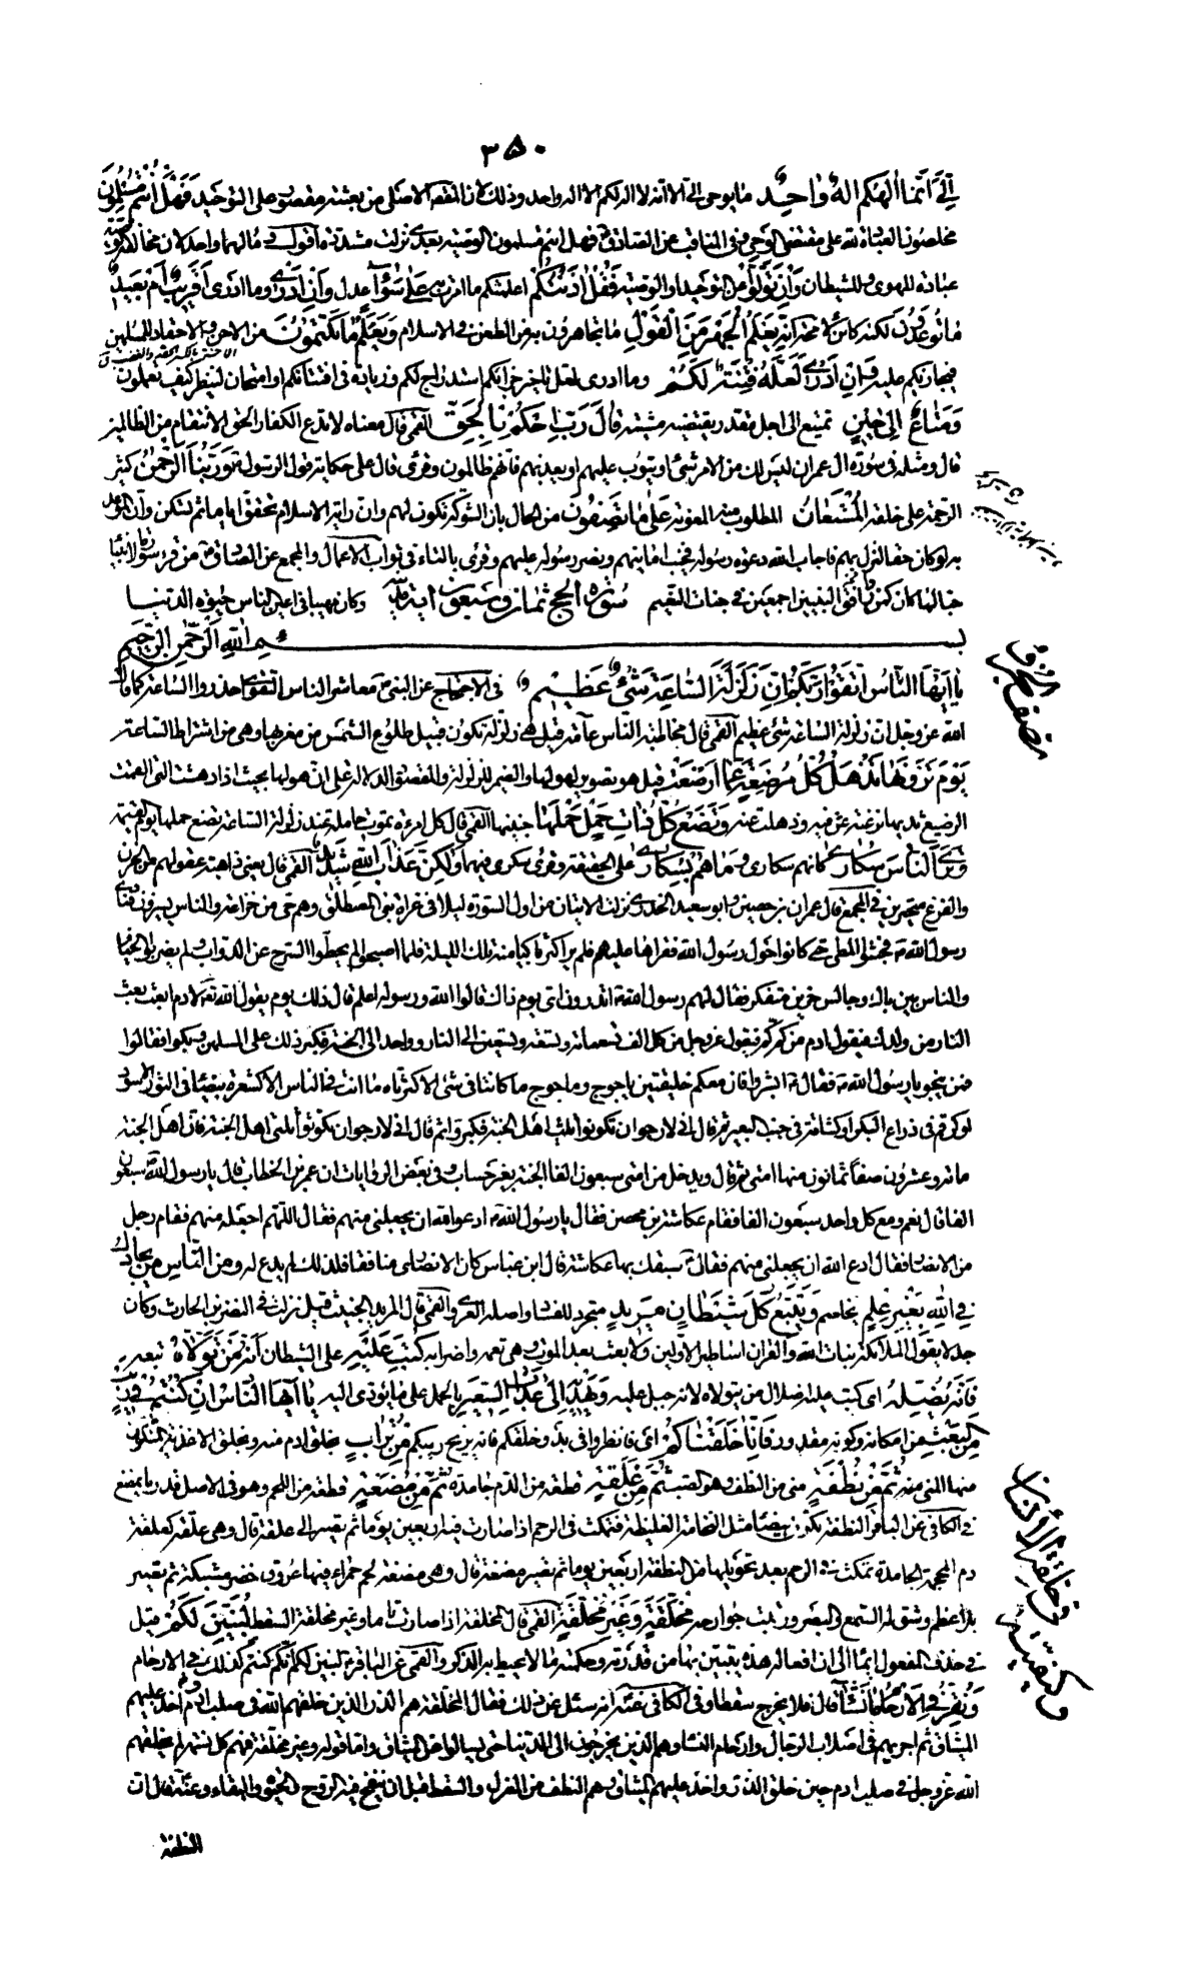 ۳۵۰
إِلَيَّ أَنَّمَا إِلٰهُكُمْ إِلٰهٌ وَاحِدٌ ما يوحى الي الا انه لا اله لكم الا اله واحد وذلك لان المقصد الاصلي من بعثته مقصور على التوحيد فَهَلْ أَنْتُمْ مُسْلِمُونَ
مخلصون العبادة لله على مقتضى الوحي وفي المناقب عن الصادق فهل انتم مسلمون الوصية بعدي نزلت مشددة
عبادة للهوى وللشيطان وَإِنْ تَوَلَّوْا عن التوحيد او الوصية فَقُلْ آذَنْتُكُمْ اعلمتكم ما امرت به عَلَىٰ سَوَاءٍ عدل وَإِنْ أَدْرِي وما ادري أَقَرِيبٌ أَمْ بَعِيدٌ
مَا تُوعَدُونَ لكنه كائن لا محالة إِنَّهُ يَعْلَمُ الْجَهْرَ مِنَ الْقَوْلِ ما تجاهرون به من الطعن في الاسلام وَيَعْلَمُ مَا تَكْتُمُونَ من الاحن والاحقاد للمسلمين
فيجازيكم عليه وَإِنْ أَدْرِي لَعَلَّهُ فِتْنَةٌ لَكُمْ وما ادري لعل تأخير جزائكم استدراج لكم وزيادة في افتتانكم او امتحان لينظر كيف تعملون
وَمَتَاعٌ إِلَىٰ حِينٍ تمتيع الى اجل مقدر يقتضيه مشيته قَالَ رَبِّ احْكُمْ بِالْحَقِّ القمي قال معناه لا تدع الكفار الحق الانتقام من الظالمين
قال ومثله في سورة ال عمران ليس لك من الامر شئ او يتوب عليهم او يعذبهم فانهم ظالمون وقرئ قال على حكاية قول الرسول وَرَبُّنَا الرَّحْمٰنُ كثير
الرحمة على خلقه الْمُسْتَعَانُ المطلوب منه المعونة عَلَىٰ مَا تَصِفُونَ من الحال بان الشوكة تكون لهم وان راية الاسلام تخفق اياما ثم تسكن وان الموعد
به لو كان حقا لنزل بهم فاجاب الله دعوة رسوله فخيب امانيهم ونصر رسوله عليهم وقرئ بالياء في ثواب الاعمال والمجمع عن الصادق من قرء سورة الانبياء
حبا لها كان كمن رافق النبيين اجمعين في جنات النعيم وكان مهيبا في اعين الناس حيوة الدنيا سورة الحج ثمان وسبعون اية
بِسْمِ اللهِ الرَّحْمٰنِ الرَّحِيمِ
يَا أَيُّهَا النَّاسُ اتَّقُوا رَبَّكُمْ إِنَّ زَلْزَلَةَ السَّاعَةِ شَيْءٌ عَظِيمٌ في الاحتجاج عن النبي معاشر الناس التقوى التقوى احذروا الساعة كما قال
الله عز وجل ان زلزلة الساعة شئ عظيم القمي قال مخاطبة للناس عامة قيل هي زلزلة تكون قبيل طلوع الشمس من مغربها وهي من اشراط الساعة
يَوْمَ تَرَوْنَهَا تَذْهَلُ كُلُّ مُرْضِعَةٍ عَمَّا أَرْضَعَتْ قيل هو تصوير لهولها والضمير للزلزلة والمقصود الدلالة على ان هولها بحيث اذا دهشت التي القمت
الرضيع ثديها نزعته عن فيه وذهلت عنه وَتَضَعُ كُلُّ ذَاتِ حَمْلٍ حَمْلَهَا جنينها القمي قال كل امرءة تموت حاملة عند زلزلة الساعة تضع حملها يوم القيمة
وَتَرَى النَّاسَ سُكَارَىٰ كانهم سكارى وَمَا هُمْ بِسُكَارَىٰ على الحقيقة وقرئ سكرى فيهما وَلٰكِنَّ عَذَابَ اللهِ شَدِيدٌ القمي قال يعني ذاهبة عقولهم من الحزن
والفزع متحيرين في المجمع قال عمران بن حصين وابو سعيد الخدري نزلت الايتان من اول السورة ليلا في غزاة بني المصطلق وهم حي من خزاعة والناس يسيرون فنادى
رسول الله فحثوا المطي حتى كانوا حول رسول الله فقراها عليهم فلم ير اكثر باكيا من تلك الليلة فلما اصبحوا لم يحطوا السرج عن الدواب ولم يضربوا الخيام
والناس بين باك وجالس حزين متفكر فقال لهم رسول الله اتدرون اي يوم ذاك قالوا الله ورسوله اعلم قال ذلك يوم يقول الله تعالى لادم ابعث بعث
النار من ولدك فيقول ادم من كم كم فيقول عز وجل من كل الف تسعمائة وتسعة وتسعين الى النار وواحد الى الجنة فكبر ذلك على المسلمين وبكوا فقالوا
فمن ينجو يا رسول الله فقال ابشروا فان معكم خليقتين ياجوج وماجوج ما كانتا في شئ الا كثرتاه ما انتم في الناس الا كشعرة بيضاء في الثور الاسود
او كرقم في ذراع البكر او كشامة في جنب البعير ثم قال اني لارجو ان تكونوا ثلث اهل الجنة فكبروا ثم قال اني لارجو ان تكونوا ثلثي اهل الجنة فان اهل الجنة
مائة وعشرون صفا ثمانون منها امتي ثم قال ويدخل من امتي سبعون الفا الجنة بغير حساب وفي بعض الروايات ان عمر بن الخطاب قال يا رسول الله سبعون
الفا قال نعم ومع كل واحد سبعون الفا فقام عكاشة بن محصن فقال يا رسول الله ادع الله ان يجعلني منهم فقال اللهم اجعله منهم فقام رجل
من الانصار فقال ادع الله ان يجعلني منهم فقال سبقك بها عكاشة قال ابن عباس كان الانصاري منافقا فلذلك لم يدع له وَمِنَ النَّاسِ مَنْ يُجَادِلُ
فِي اللهِ بِغَيْرِ عِلْمٍ يخاصم وَيَتَّبِعُ كُلَّ شَيْطَانٍ مَرِيدٍ متجرد للفساد واصله العرى والقمي قال المريد الخبيث قيل نزلت في النضر بن الحارث وكان
جدلا يقول الملائكة بنات الله والقران اساطير الاولين ولا بعث بعد الموت وهي تعمه واضرابه كُتِبَ عَلَيْهِ على الشيطان أَنَّهُ مَنْ تَوَلَّاهُ تبعه
فَأَنَّهُ يُضِلُّهُ اي كتب عليه اضلال من يتولاه لانه جبل عليه وَيَهْدِيهِ إِلَىٰ عَذَابِ السَّعِيرِ بالحمل على ما يؤدي اليه يَا أَيُّهَا النَّاسُ إِنْ كُنْتُمْ فِي رَيْبٍ
مِنَ الْبَعْثِ من امكانه وكونه مقدورا فَإِنَّا خَلَقْنَاكُمْ اي فانظروا في بدو خلقكم فانه يزيح ريبكم مِنْ تُرَابٍ بخلق ادم منه وبخلق الاغذية المتكون
منها المني منه ثُمَّ مِنْ نُطْفَةٍ مني من النطف وهو الصب ثُمَّ مِنْ عَلَقَةٍ قطعة من الدم جامدة ثُمَّ مِنْ مُضْغَةٍ قطعة من اللحم وهو في الاصل قدر ما يمضغ
في الكافي عن الباقر النطفة تكون بيضاء مثل النخامة الغليظة فتمكث في الرحم اذا صارت فيه اربعين يوما ثم تصير الى علقة قال وهي علقة كعلقة
دم المحجمة الجامدة تمكث في الرحم بعد تحويلها من النطفة اربعين يوما ثم تصير مضغة قال وهي مضغة لحم حمراء فيها عروق خضر مشبكة ثم تصير
الى عظم وشق له السمع والبصر ورتبت جوارحه مُخَلَّقَةٍ وَغَيْرِ مُخَلَّقَةٍ القمي قال المخلقة اذا صارت تاما وغير مخلقة السقط لِنُبَيِّنَ لَكُمْ قيل
في حذف المفعول ايماء الى ان افعاله هذه يتبين بها من قدرته وحكمته ما لا يحيط به الذكر والقمي عن الباقر لنبين لكم انكم كنتم كذلك في الارحام
وَنُقِرُّ فِي الْأَرْحَامِ مَا نَشَاءُ قال فلا يخرج سقطا وفي الكافي عنه انه سئل عن ذلك فقال المخلقة هم الذر الذين خلقهم الله في صلب ادم اخذ عليهم
الميثاق ثم اجريهم في اصلاب الرجال وارحام النساء وهم الذين يخرجون الى الدنيا حتى يسالوا عن الميثاق واما قوله وغير مخلقة فهم كل نسمة لم يخلقهم
الله عز وجل في صلب ادم حين خلق الذر واخذ عليهم الميثاق وهم النطف من العزل والسقط قبل ان ينفخ فيه الروح والحيوة والبقاء وعنه قال ان
النطفة